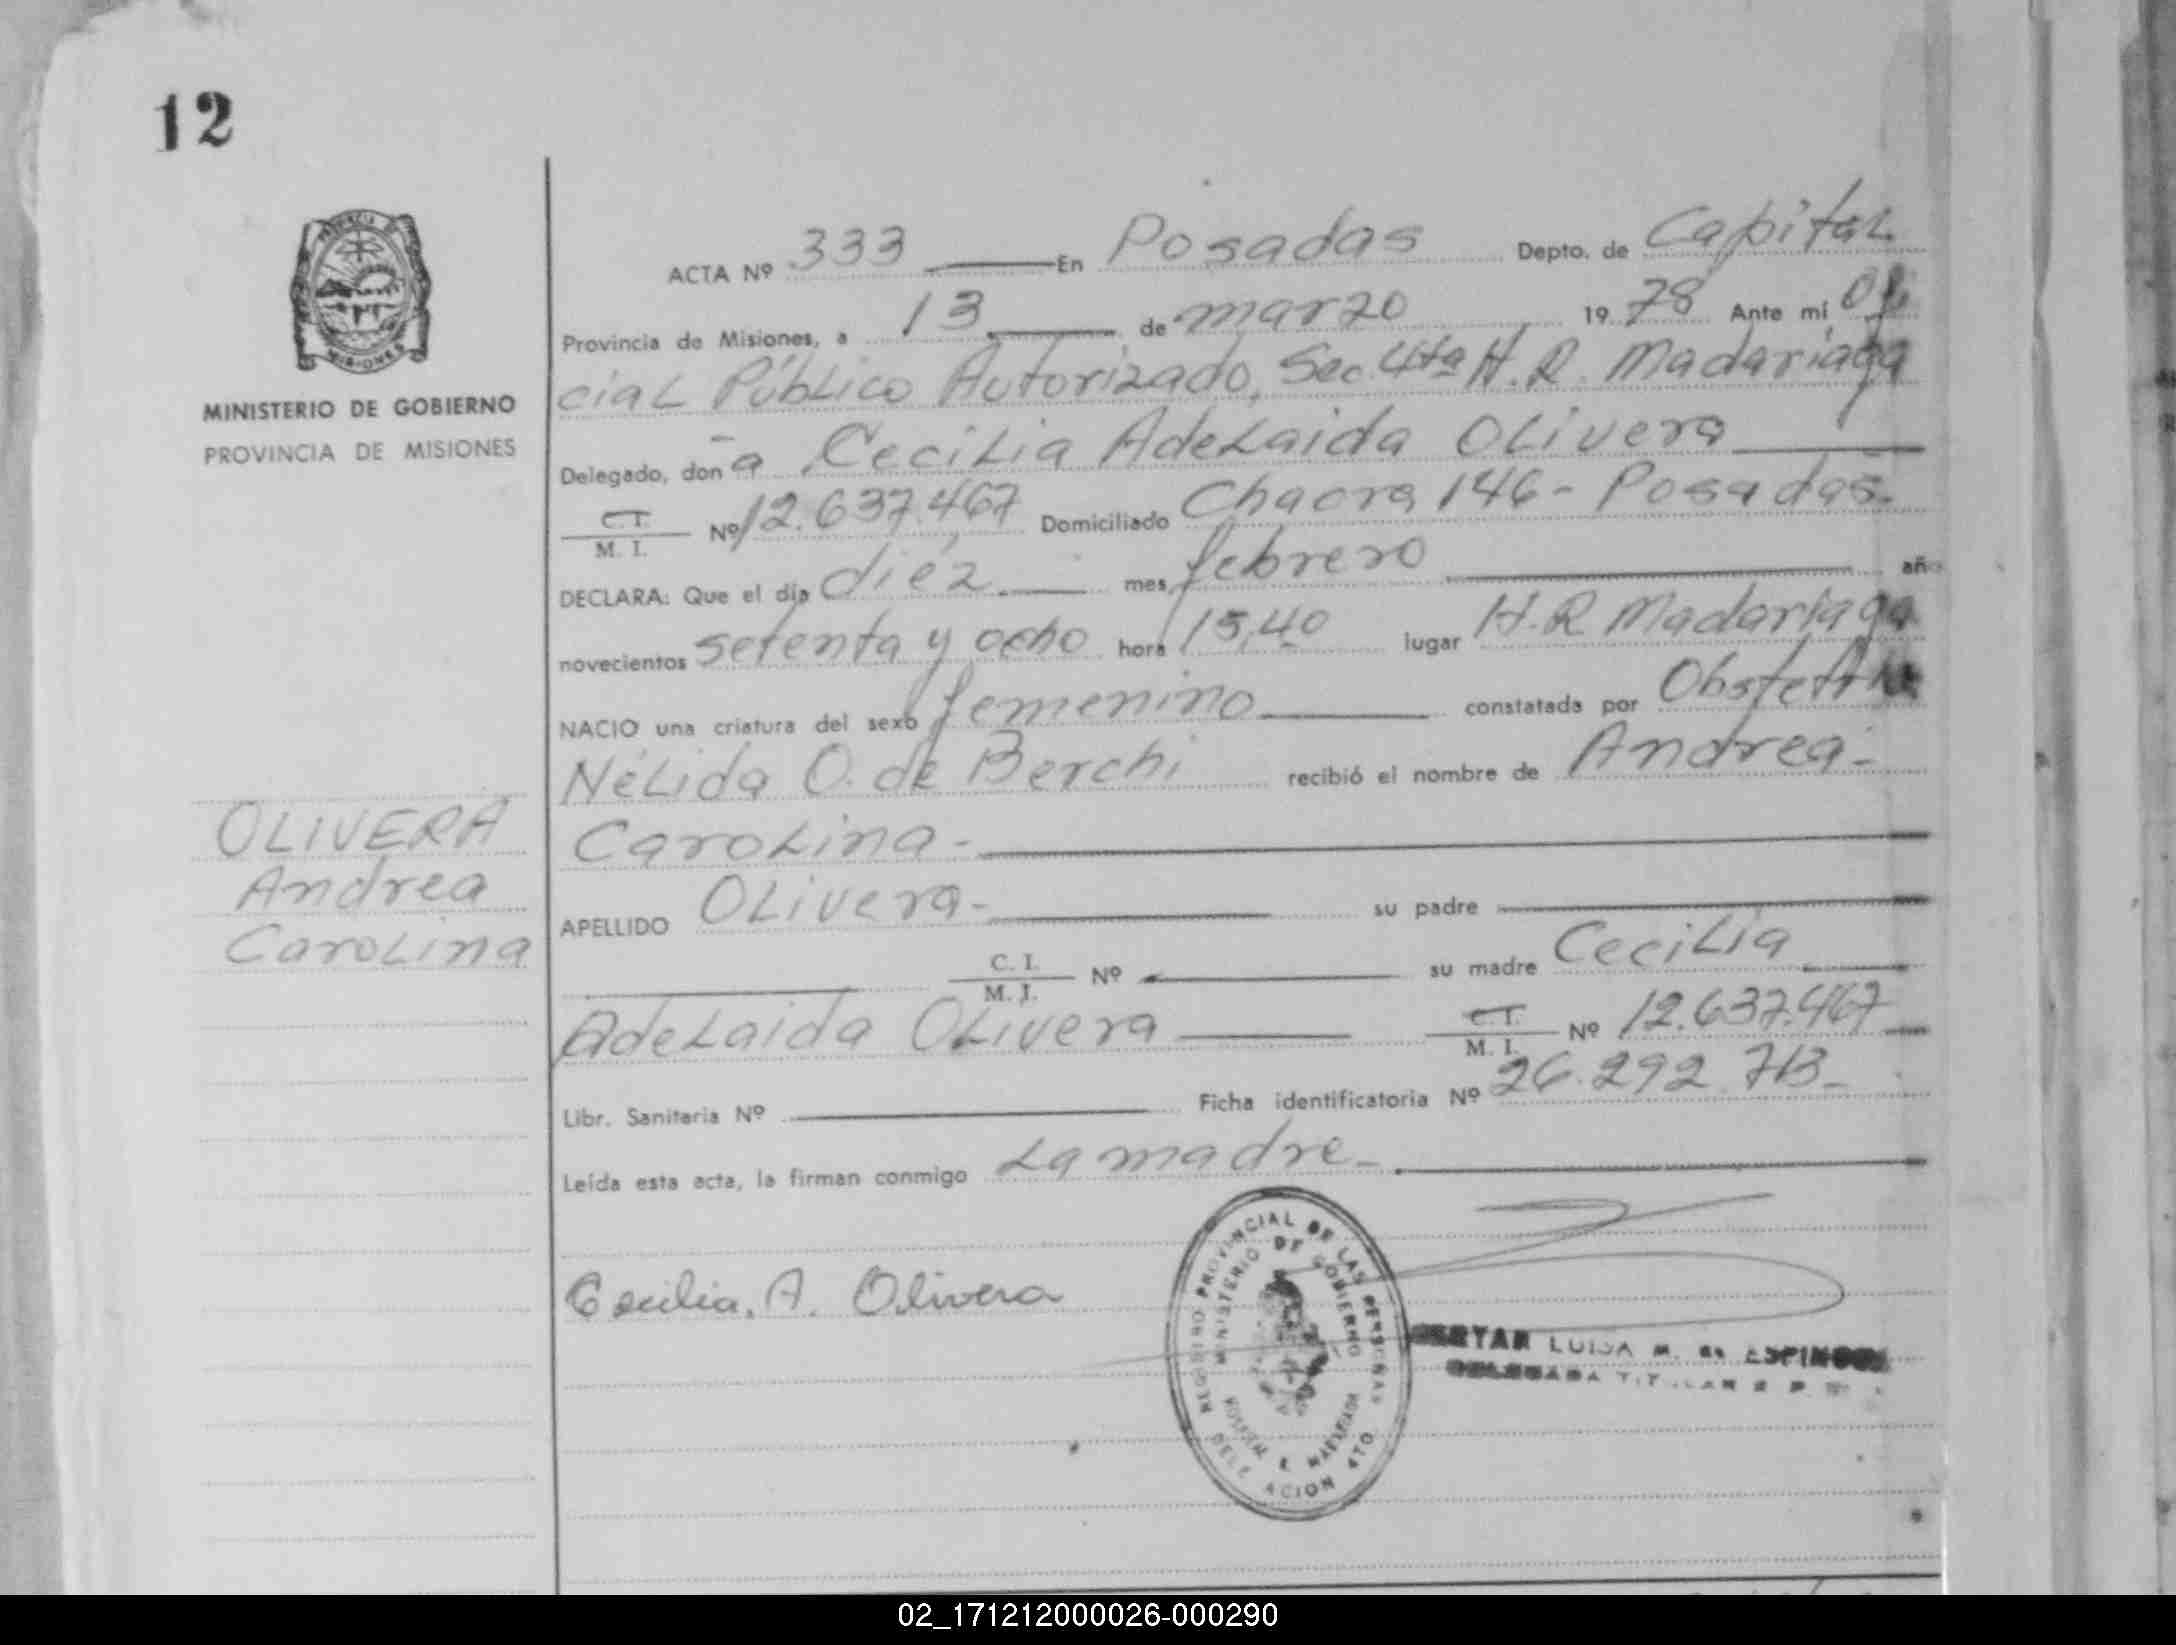 12
MINISTERIO DE GOBIERNO
PROVINCIA DE MISIONES
ACTA Nº 333 En Posadas Depto. de Capital
Provincia de Misiones, a 13 de marzo 1978 Ante mí Ofi
cial Público Autorizado, Sec. 4ta H.R. Madariaga
Delegado, don a Cecilia Adelaida Olivera
C.I.
M. I. Nº 12.637.467 Domiciliado Chacra 146 - Posadas.
DECLARA: Que el día diéz mes febrero año
novecientos setenta y ocho hora 15,40 lugar H.R Madariaga
NACIO una criatura del sexo femenino constatada por
Nélida O. de Berchi recibió el nombre de Andrea-
Carolina.-
APELLIDO Olivera- su padre
C. I.
M. I. Nº su madre Cecilia
Adelaida Olivera C.I.
M. I. Nº 12.637.467
Libr. Sanitaria Nº Ficha identificatoria Nº 26.292.713-
Leída esta acta, la firman conmigo La madre-
OLIVERA
Andrea
Carolina
Cecilia. A. Olivera
REGISTRO PROVINCIAL DE LAS PERSONAS
MINISTERIO DE GOBIERNO
LUISA M. de ESPINOSA
02_171212000026-000290